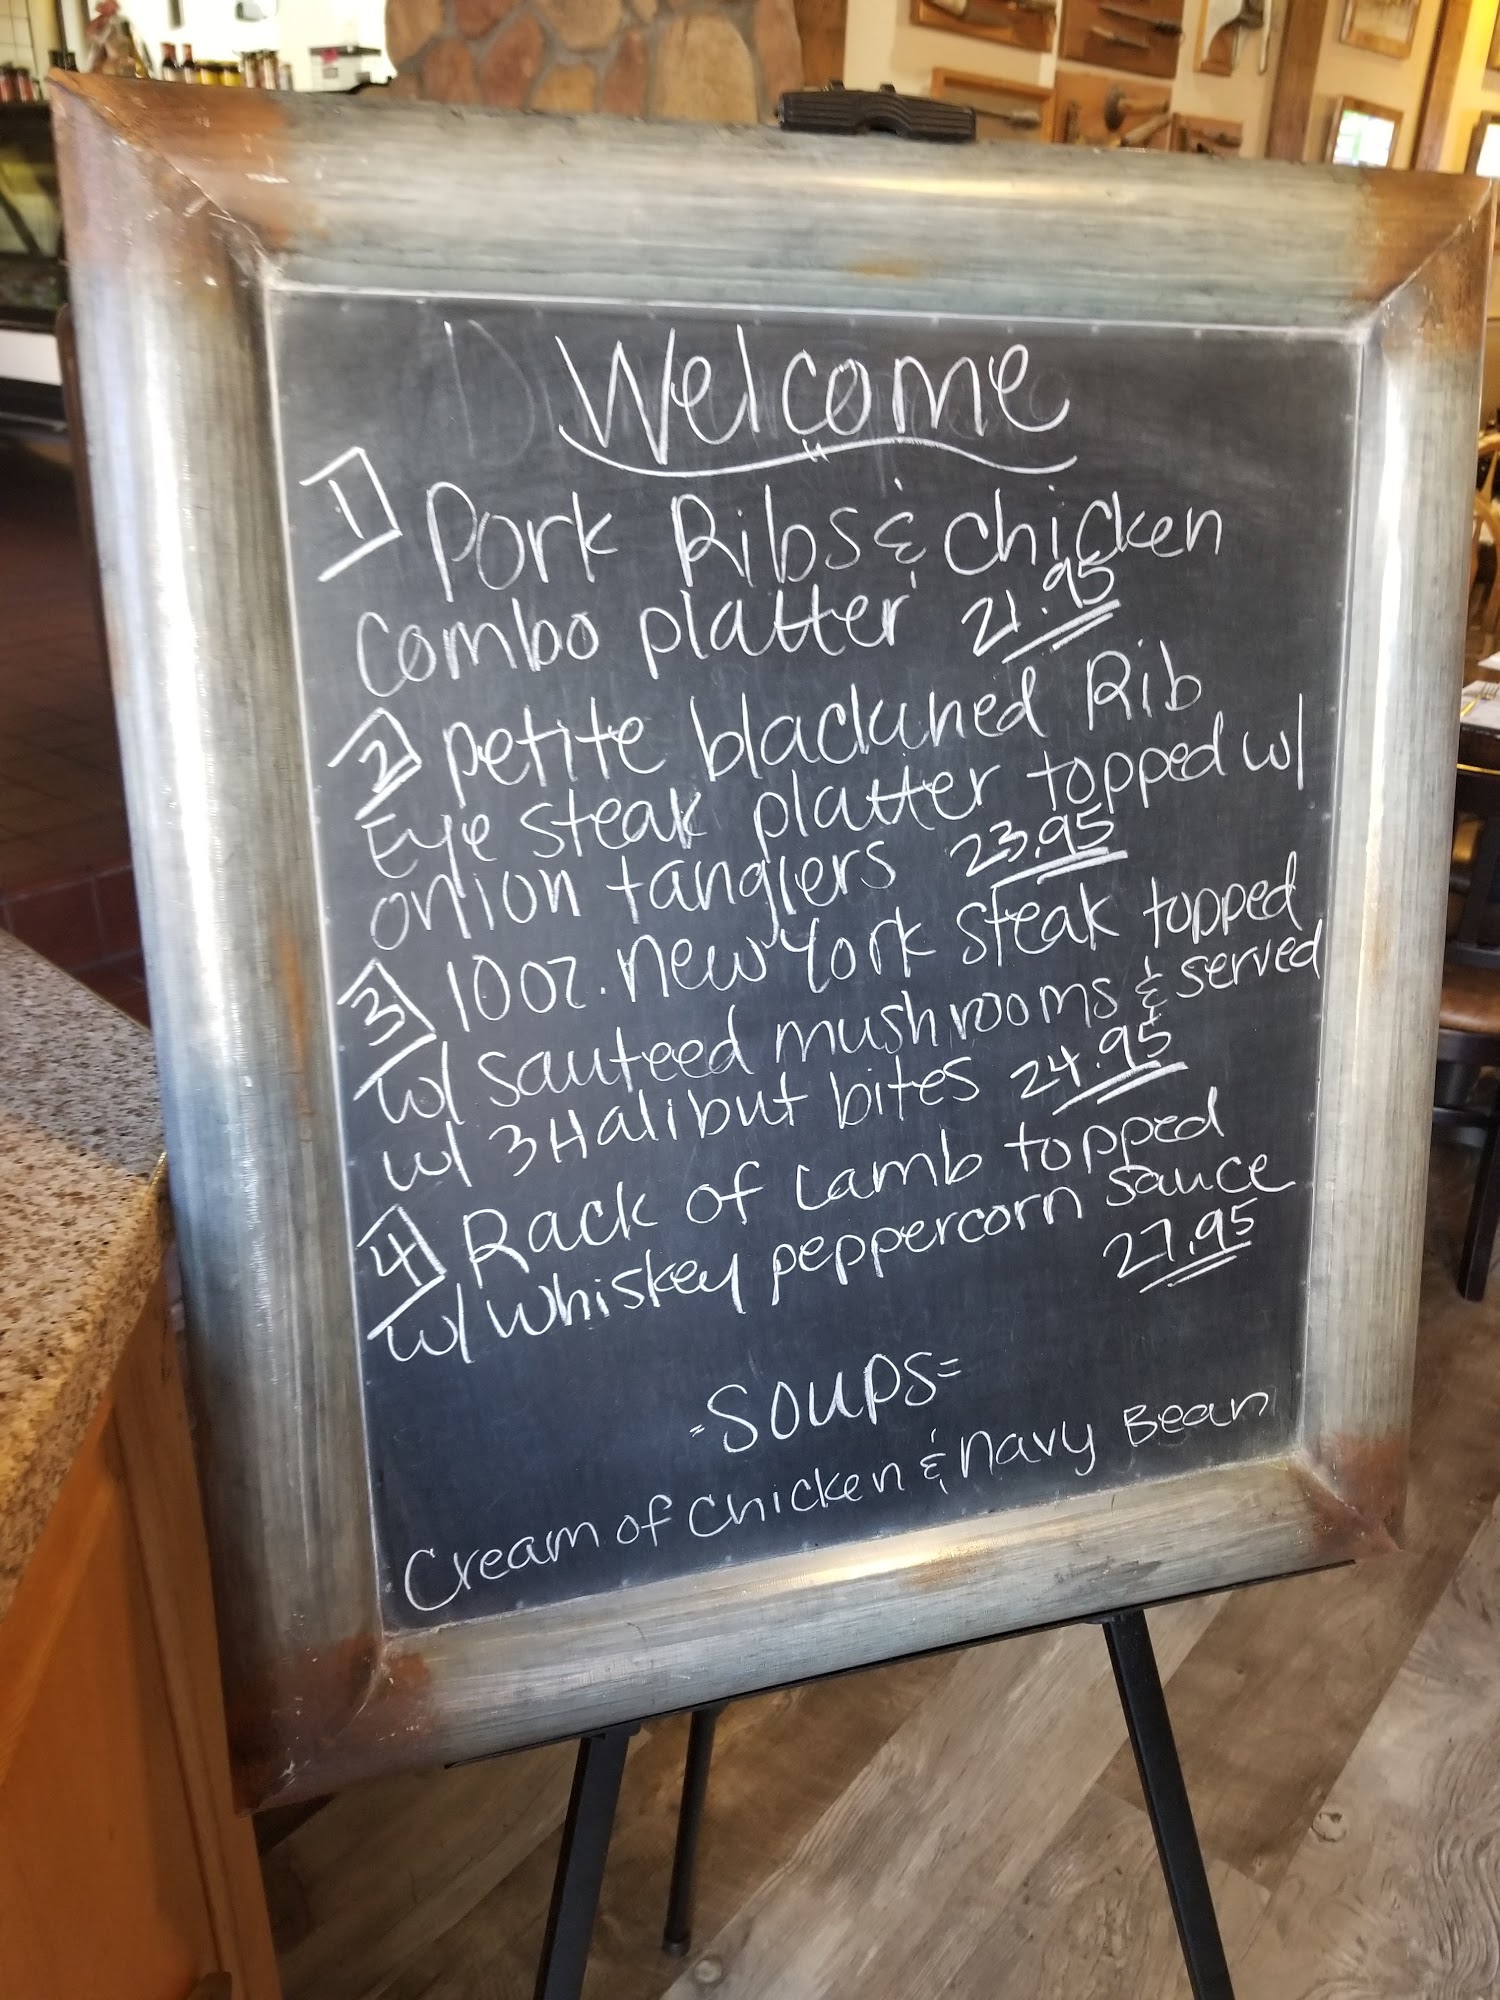 Welcome
1 Pork Ribs & Chicken
Combo platter 21.95
2 petite blackened Rib
Eye steak platter topped w/
onion tanglers 23.95
3 10oz. new York steak topped
w/ sauteed mushrooms & served
w/ 3 Halibut bites 24.95
4 Rack of Lamb topped
w/ whiskey peppercorn sauce
27.95
=SOUPS=
Cream of Chicken & Navy Bean